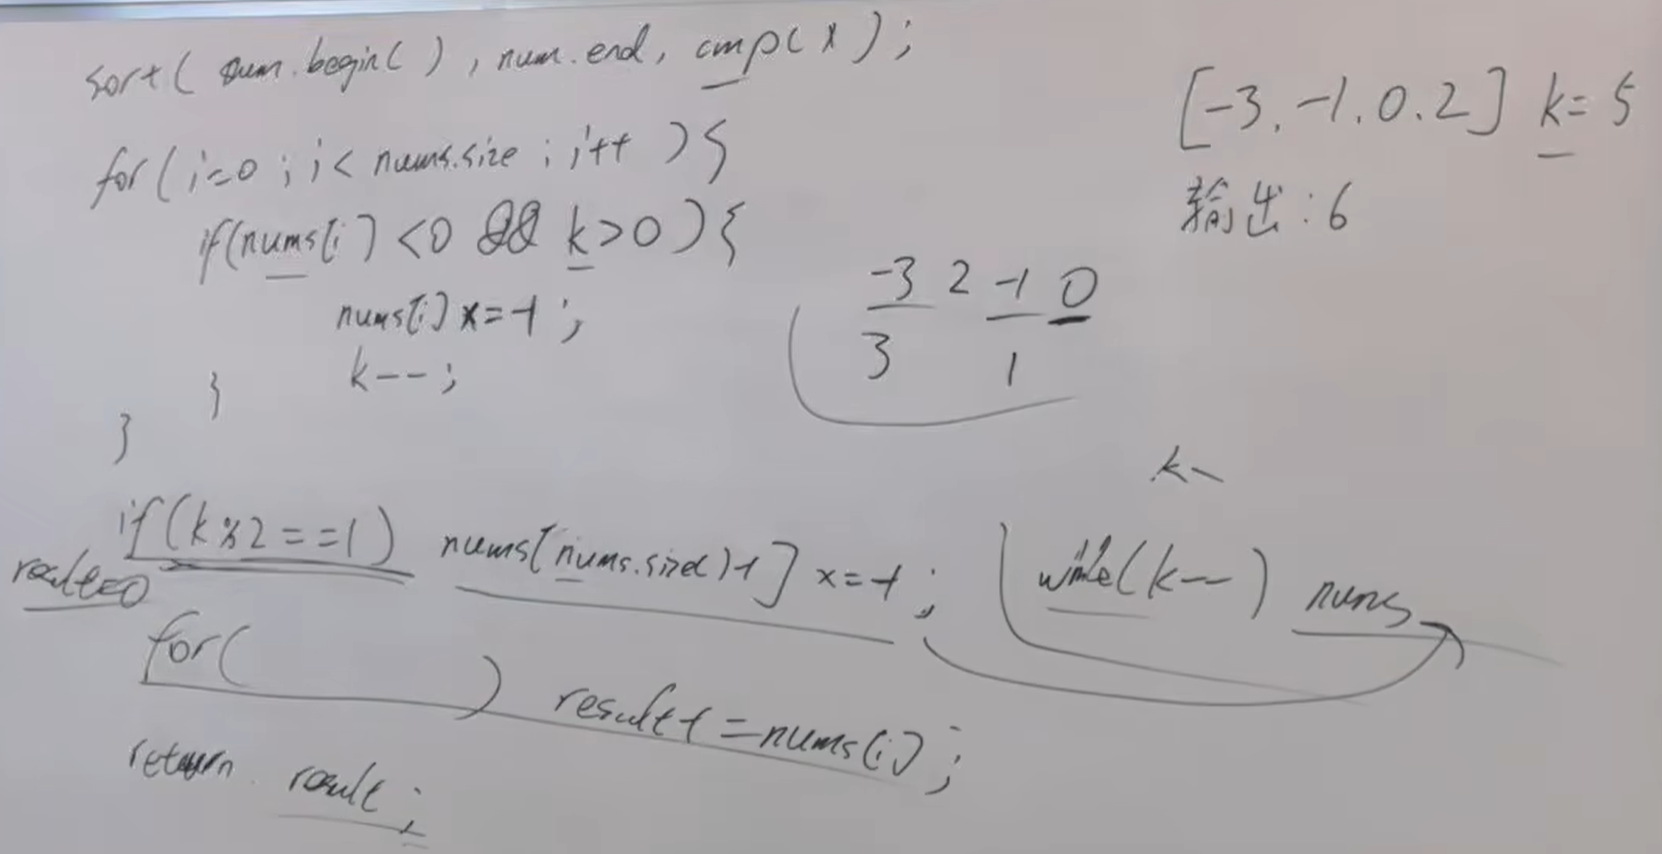 sort( num.begin( ) , num.end, cmp( x ) ;
for( i=0 ; i< nums.size ; i++ ) {
if(nums[i] <0 && k>0 ) {
nums[i] x=-1 ;
k-- ;
}
}
if(k%2==1) nums[nums.size()-1] x=-1 ;
result=0
for( ) result+=nums[i] ;
return result ;
[-3. -1. 0. 2] k= 5
输出 : 6
-3 2 -1 0
3 1
k-
while(k--) nums